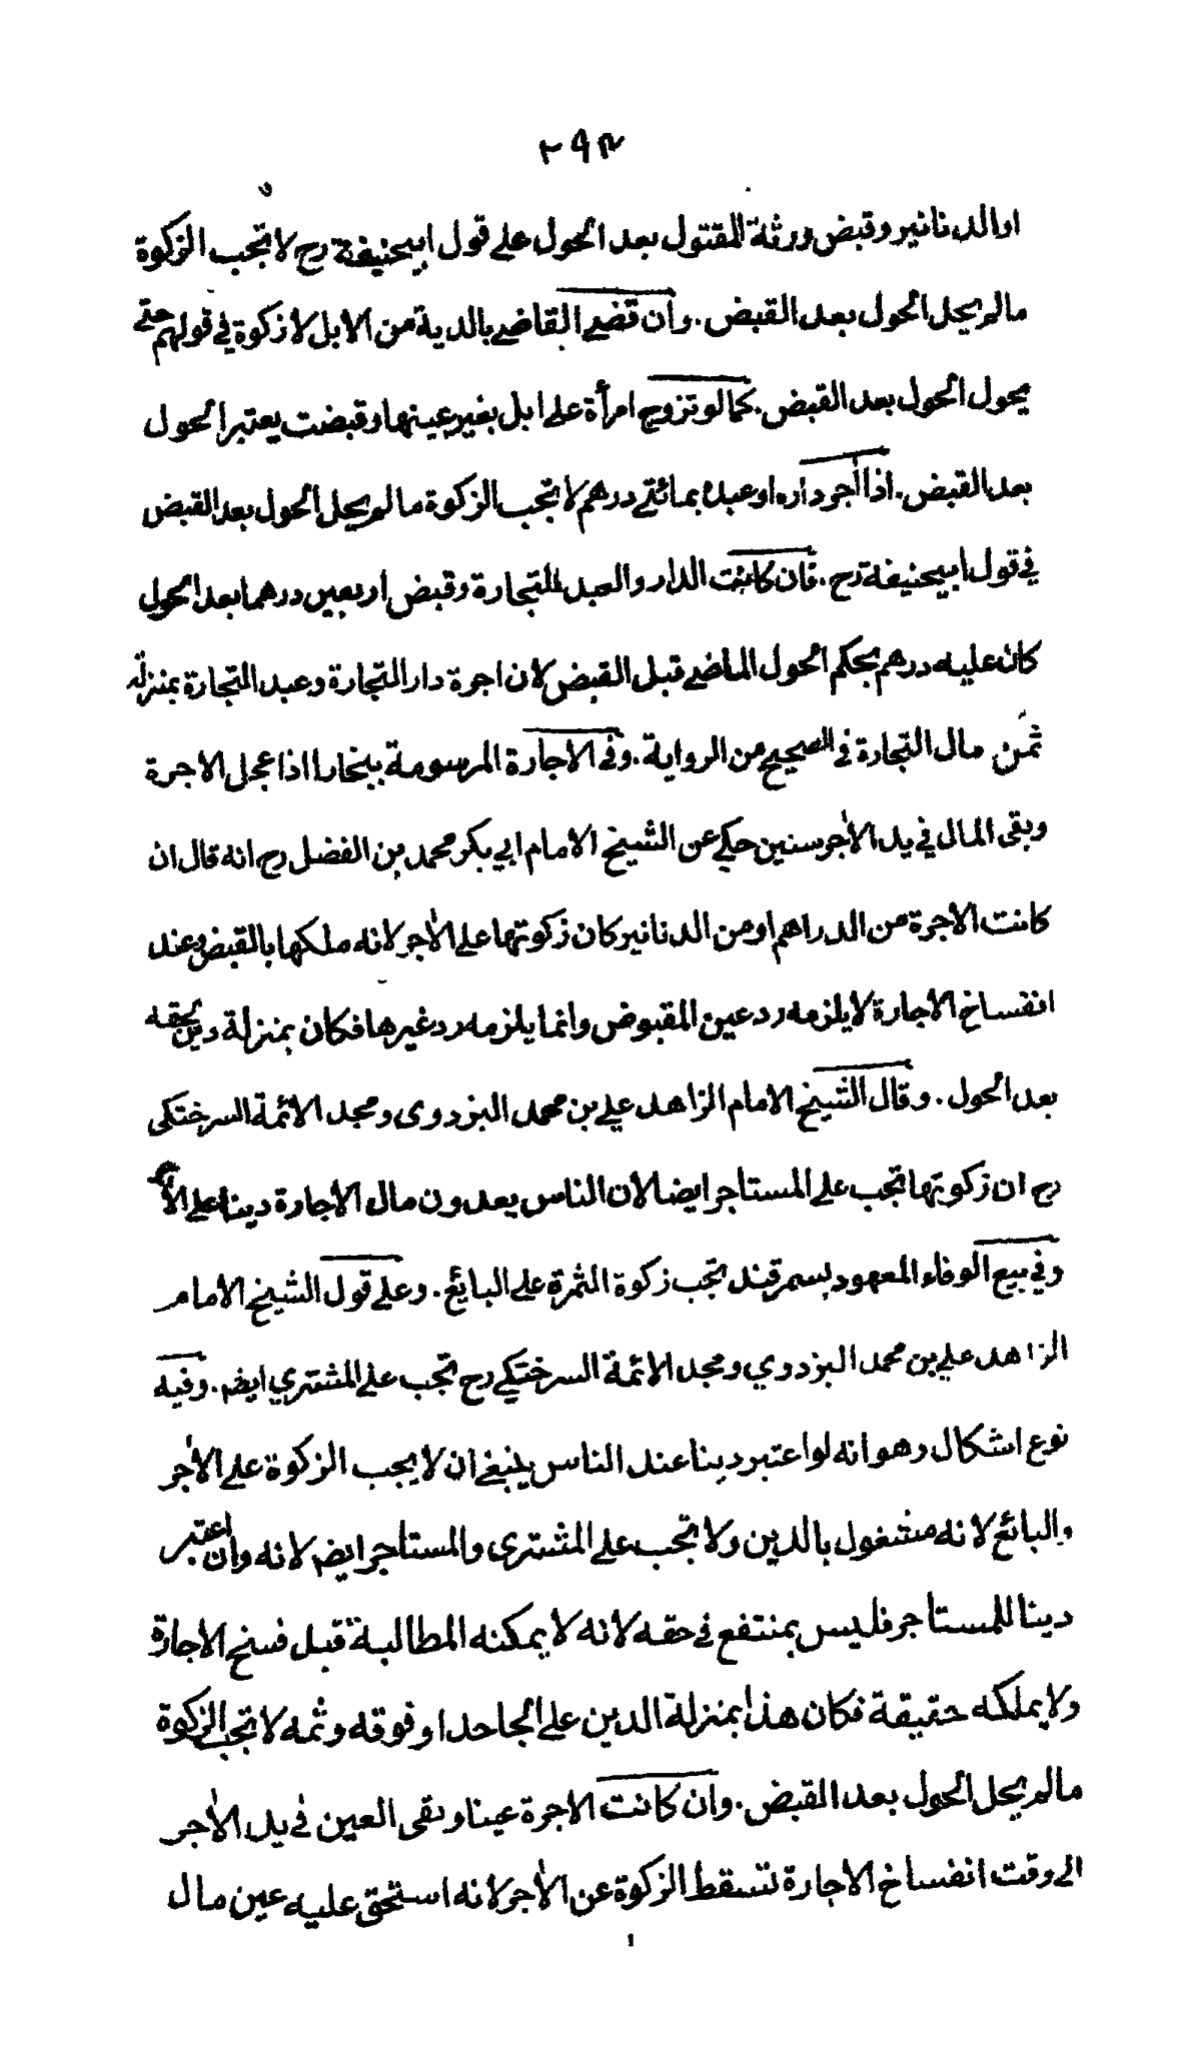 ٢٩٢
اوالدنانير وقبض ورثة المقتول بعد الحول على قول ابيحنيفة رح لا تجب الزكوة
مالم يحل الحول بعد القبض . وان قضى القاضي بالدية من الابل لا زكوة في قولهم حتى
يحول الحول بعد القبض . كما لو تزوج امرأة على ابل بغير عينها وقبضت يعتبر الحول
بعد القبض . اذا آجر داره او عبده بمائتي درهم لا تجب الزكوة مالم يحل الحول بعد القبض
في قول ابيحنيفة رح . فان كانت الدار والعبد للتجارة وقبض اربعين درهما بعد الحول
كان عليه درهم بحكم الحول الماضي قبل القبض لان اجرة دار التجارة وعبد التجارة بمنزلة
ثمن مال التجارة في الصحيح من الرواية . وفي الاجارة المرسومة ببخارا اذا عجل الاجرة
وبقى المال في يد الآجر سنين حكي عن الشيخ الامام ابي بكر محمد بن الفضل رح انه قال ان
كانت الاجرة من الدراهم او من الدنانير كان زكوتها على الآجر لانه ملكها بالقبض وعند
انفساخ الاجارة لا يلزمه رد عين المقبوض وانما يلزمه رد غيرها فكان بمنزلة دين لحقه
بعد الحول . وقال الشيخ الامام الزاهد علي بن محمد البزدوى ومجد الائمة السرختكى
رح ان زكوتها تجب على المستاجر ايضا لان الناس يعدون مال الاجارة دينا على الآجر
وفي بيع الوفاء المعهود بسمرقند تجب زكوة الثمرة على البائع . وعلى قول الشيخ الامام
الزاهد علي بن محمد البزدوي ومجد الائمة السرختكي رح تجب على المشتري ايضم . وفيه
نوع اشكال وهو انه لو اعتبر دينا عند الناس ينبغي ان لا يجب الزكوة على الآجر
والبائع لانه مشغول بالدين ولا تجب على المشترى والمستاجر ايضم لانه وان اعتبر
دينا للمستاجر فليس بمنتفع في حقه لانه لا يمكنه المطالبة قبل فسخ الاجارة
ولا يملكه حقيقة فكان هذا بمنزلة الدين على الجاحد او فوقه وثمه لا تجب الزكوة
مالم يحل الحول بعد القبض . وان كانت الاجرة عينا وبقى العين في يد الآجر
الى وقت انفساخ الاجارة تسقط الزكوة عن الآجر لانه استحق عليه عين مال